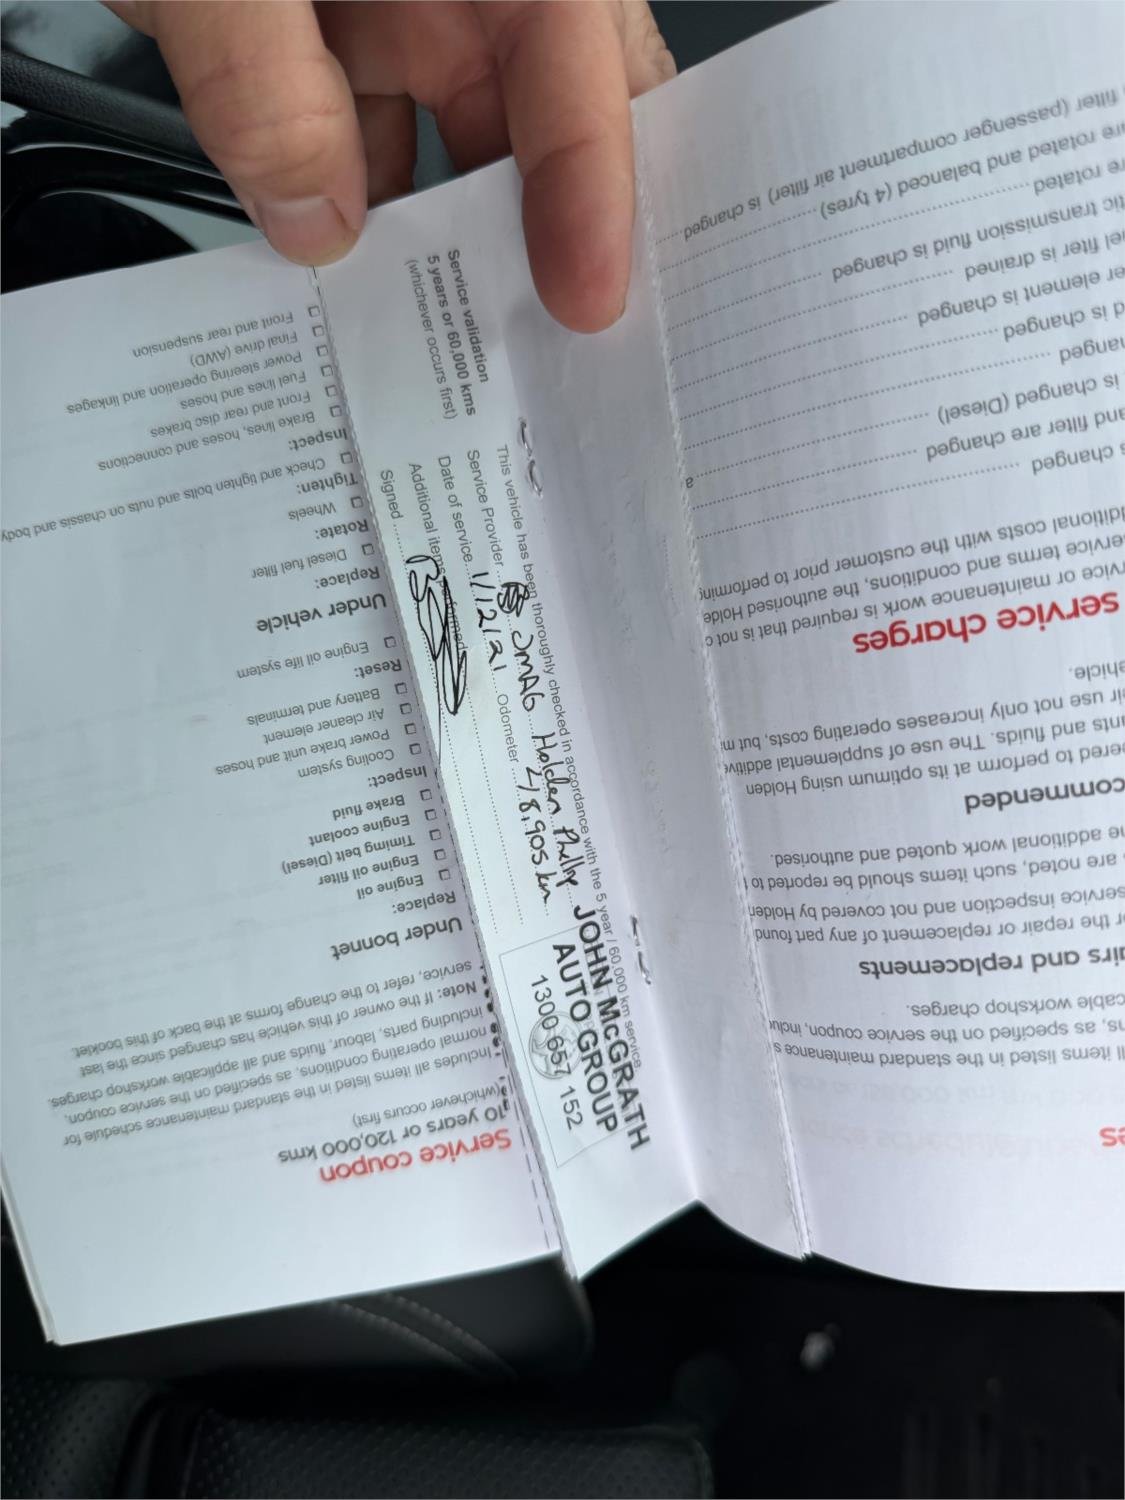 Service coupon
10 years or 120,000 kms
(whichever occurs first)
Includes all items listed in the standard maintenance schedule for
normal operating conditions, as specified on the service coupon,
including parts, labour, fluids and all applicable workshop charges.
Note: If the owner of this vehicle has changed since the last
service, refer to the change forms at the back of this booklet.
Under bonnet
Replace:
Engine oil
Engine oil filter
Timing belt (Diesel)
Engine coolant
Brake fluid
Inspect:
Cooling system
Power brake unit and hoses
Air cleaner element
Battery and terminals
Reset:
Engine oil life system
Under vehicle
Replace:
Diesel fuel filter
Rotate:
Wheels
Tighten:
Check and tighten bolts and nuts on chassis and body
Inspect:
Brake lines, hoses and connections
Front and rear disc brakes
Fuel lines and hoses
Power steering operation and linkages
Final drive (AWD)
Front and rear suspension
Service validation
5 years or 60,000 kms
(whichever occurs first)
This vehicle has been thoroughly checked in accordance with the 5 year / 60,000 km service
Service Provider JMAG Holden Phillip
Date of service 1/12/21 Odometer 48,905 km
Additional items performed
Signed
JOHN McGRATH
AUTO GROUP
1300 657 152
ll items listed in the standard maintenance s
ns, as specified on the service coupon, inclu
cable workshop charges.
irs and replacements
or the repair or replacement of any part found
service inspection and not covered by Holden
are noted, such items should be reported to t
he additional work quoted and authorised.
commended
ered to perform at its optimum using Holden
nts and fluids. The use of supplemental additive
ir use not only increases operating costs, but m
ehicle.
service charges
rvice or maintenance work is required that is not c
service terms and conditions, the authorised Holde
dditional costs with the customer prior to performing
s changed
and filter are changed
is changed (Diesel)
hanged
d is changed
er element is changed
el filter is drained
tic transmission fluid is changed
re rotated
are rotated and balanced (4 tyres)
filter (passenger compartment air filter) is changed